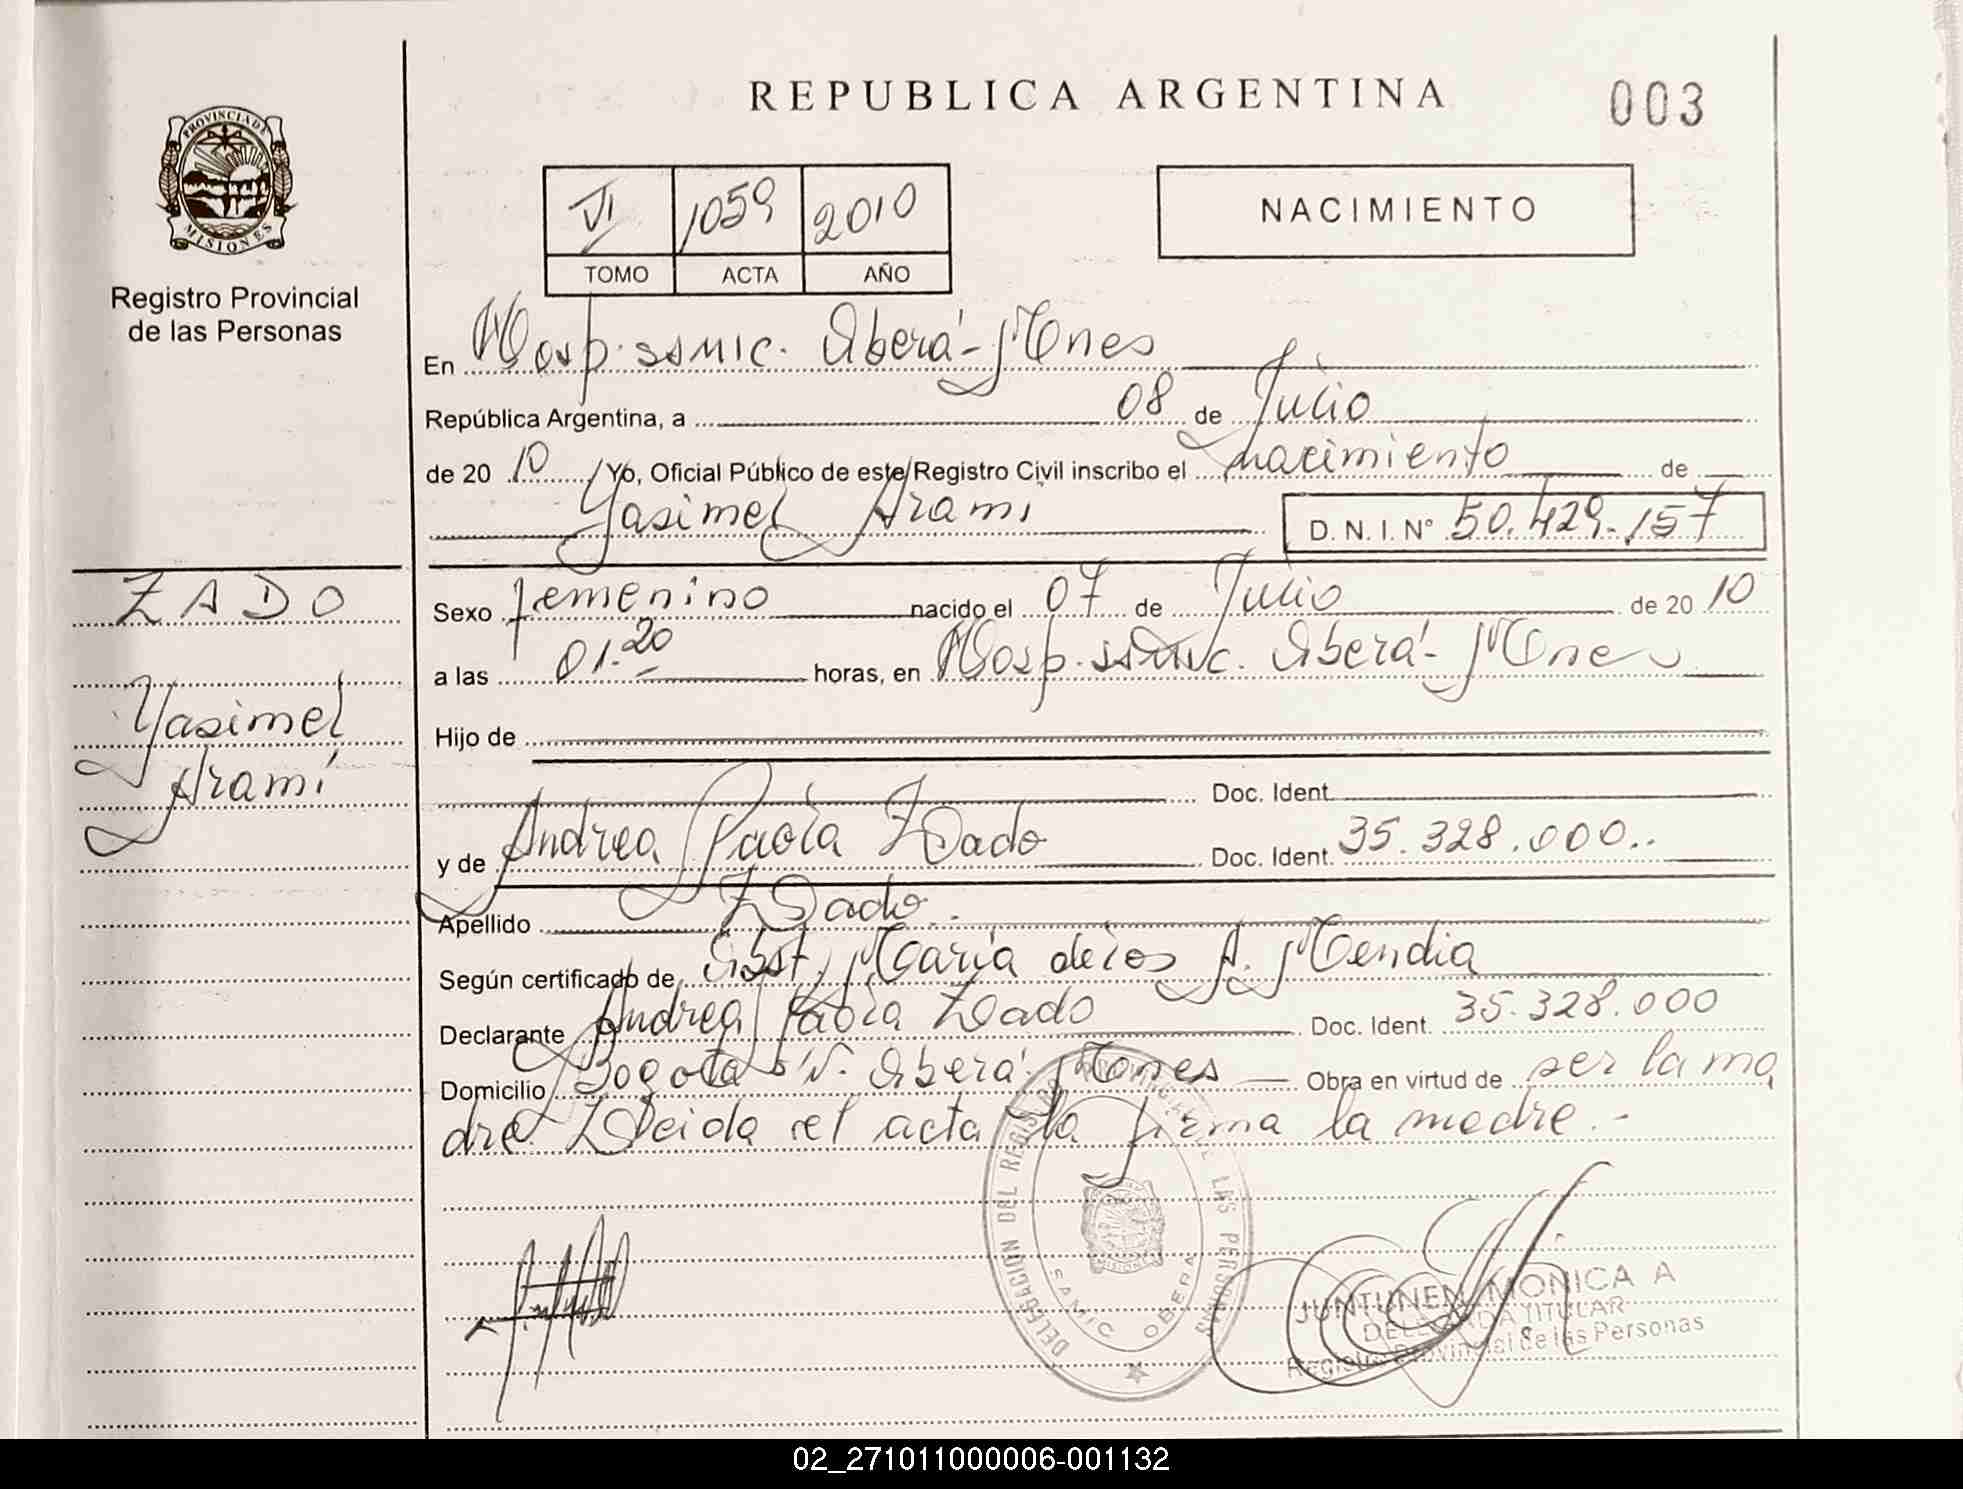 REPUBLICA ARGENTINA
003
PROVINCIA DE
MISIONES
Registro Provincial
de las Personas
VI 1059 2010
TOMO ACTA AÑO
NACIMIENTO
En Hosp. SSMIC. Oberá - Mnes
República Argentina, a 08 de Julio
de 20 10 Yo, Oficial Público de este Registro Civil inscribo el nacimiento de
Yasimel Arami D. N. I. Nº 50.429.157
ZADO
Yasimel
Aramí
Sexo femenino nacido el 07 de Julio de 20 10
a las 01.20 horas, en Hosp. Oberá - Mnes
Hijo de
Doc. Ident.
y de Andrea Paola Zado Doc. Ident. 35.328.000..
Apellido Zado.
Según certificado de Obst. María de los A. Mendia
Declarante Andrea Paola Zado Doc. Ident. 35.328.000
Domicilio Bogota S/N. Oberá Mnes Obra en virtud de ser la ma
dre. Leida el acta la firma la madre.-
DELEGACION DEL REGISTRO PROVINCIAL DE LAS PERSONAS
SAMIC OBERA
MISIONES
JUNTUNEN MONICA A
DELEGADA TITULAR
Registro Provincial de las Personas
02_271011000006-001132